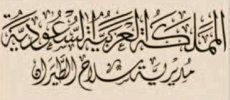 المملكة العربية السعودية
مديرية سلاح الطيران